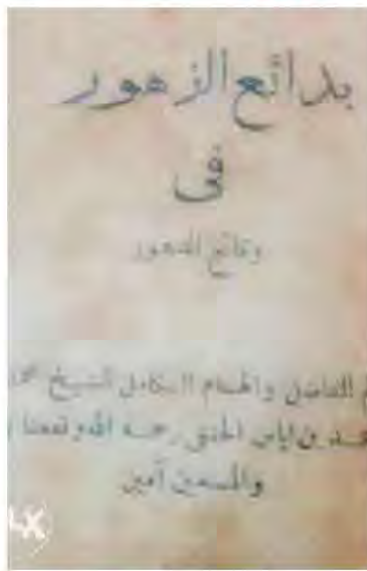 بدائع الزهور
فى
وقائع الدهور
الفاضل والهمام الكامل الشيخ محمد
بن اياس الحنفى رحمه الله ونفعنا
والمسلمين آمين